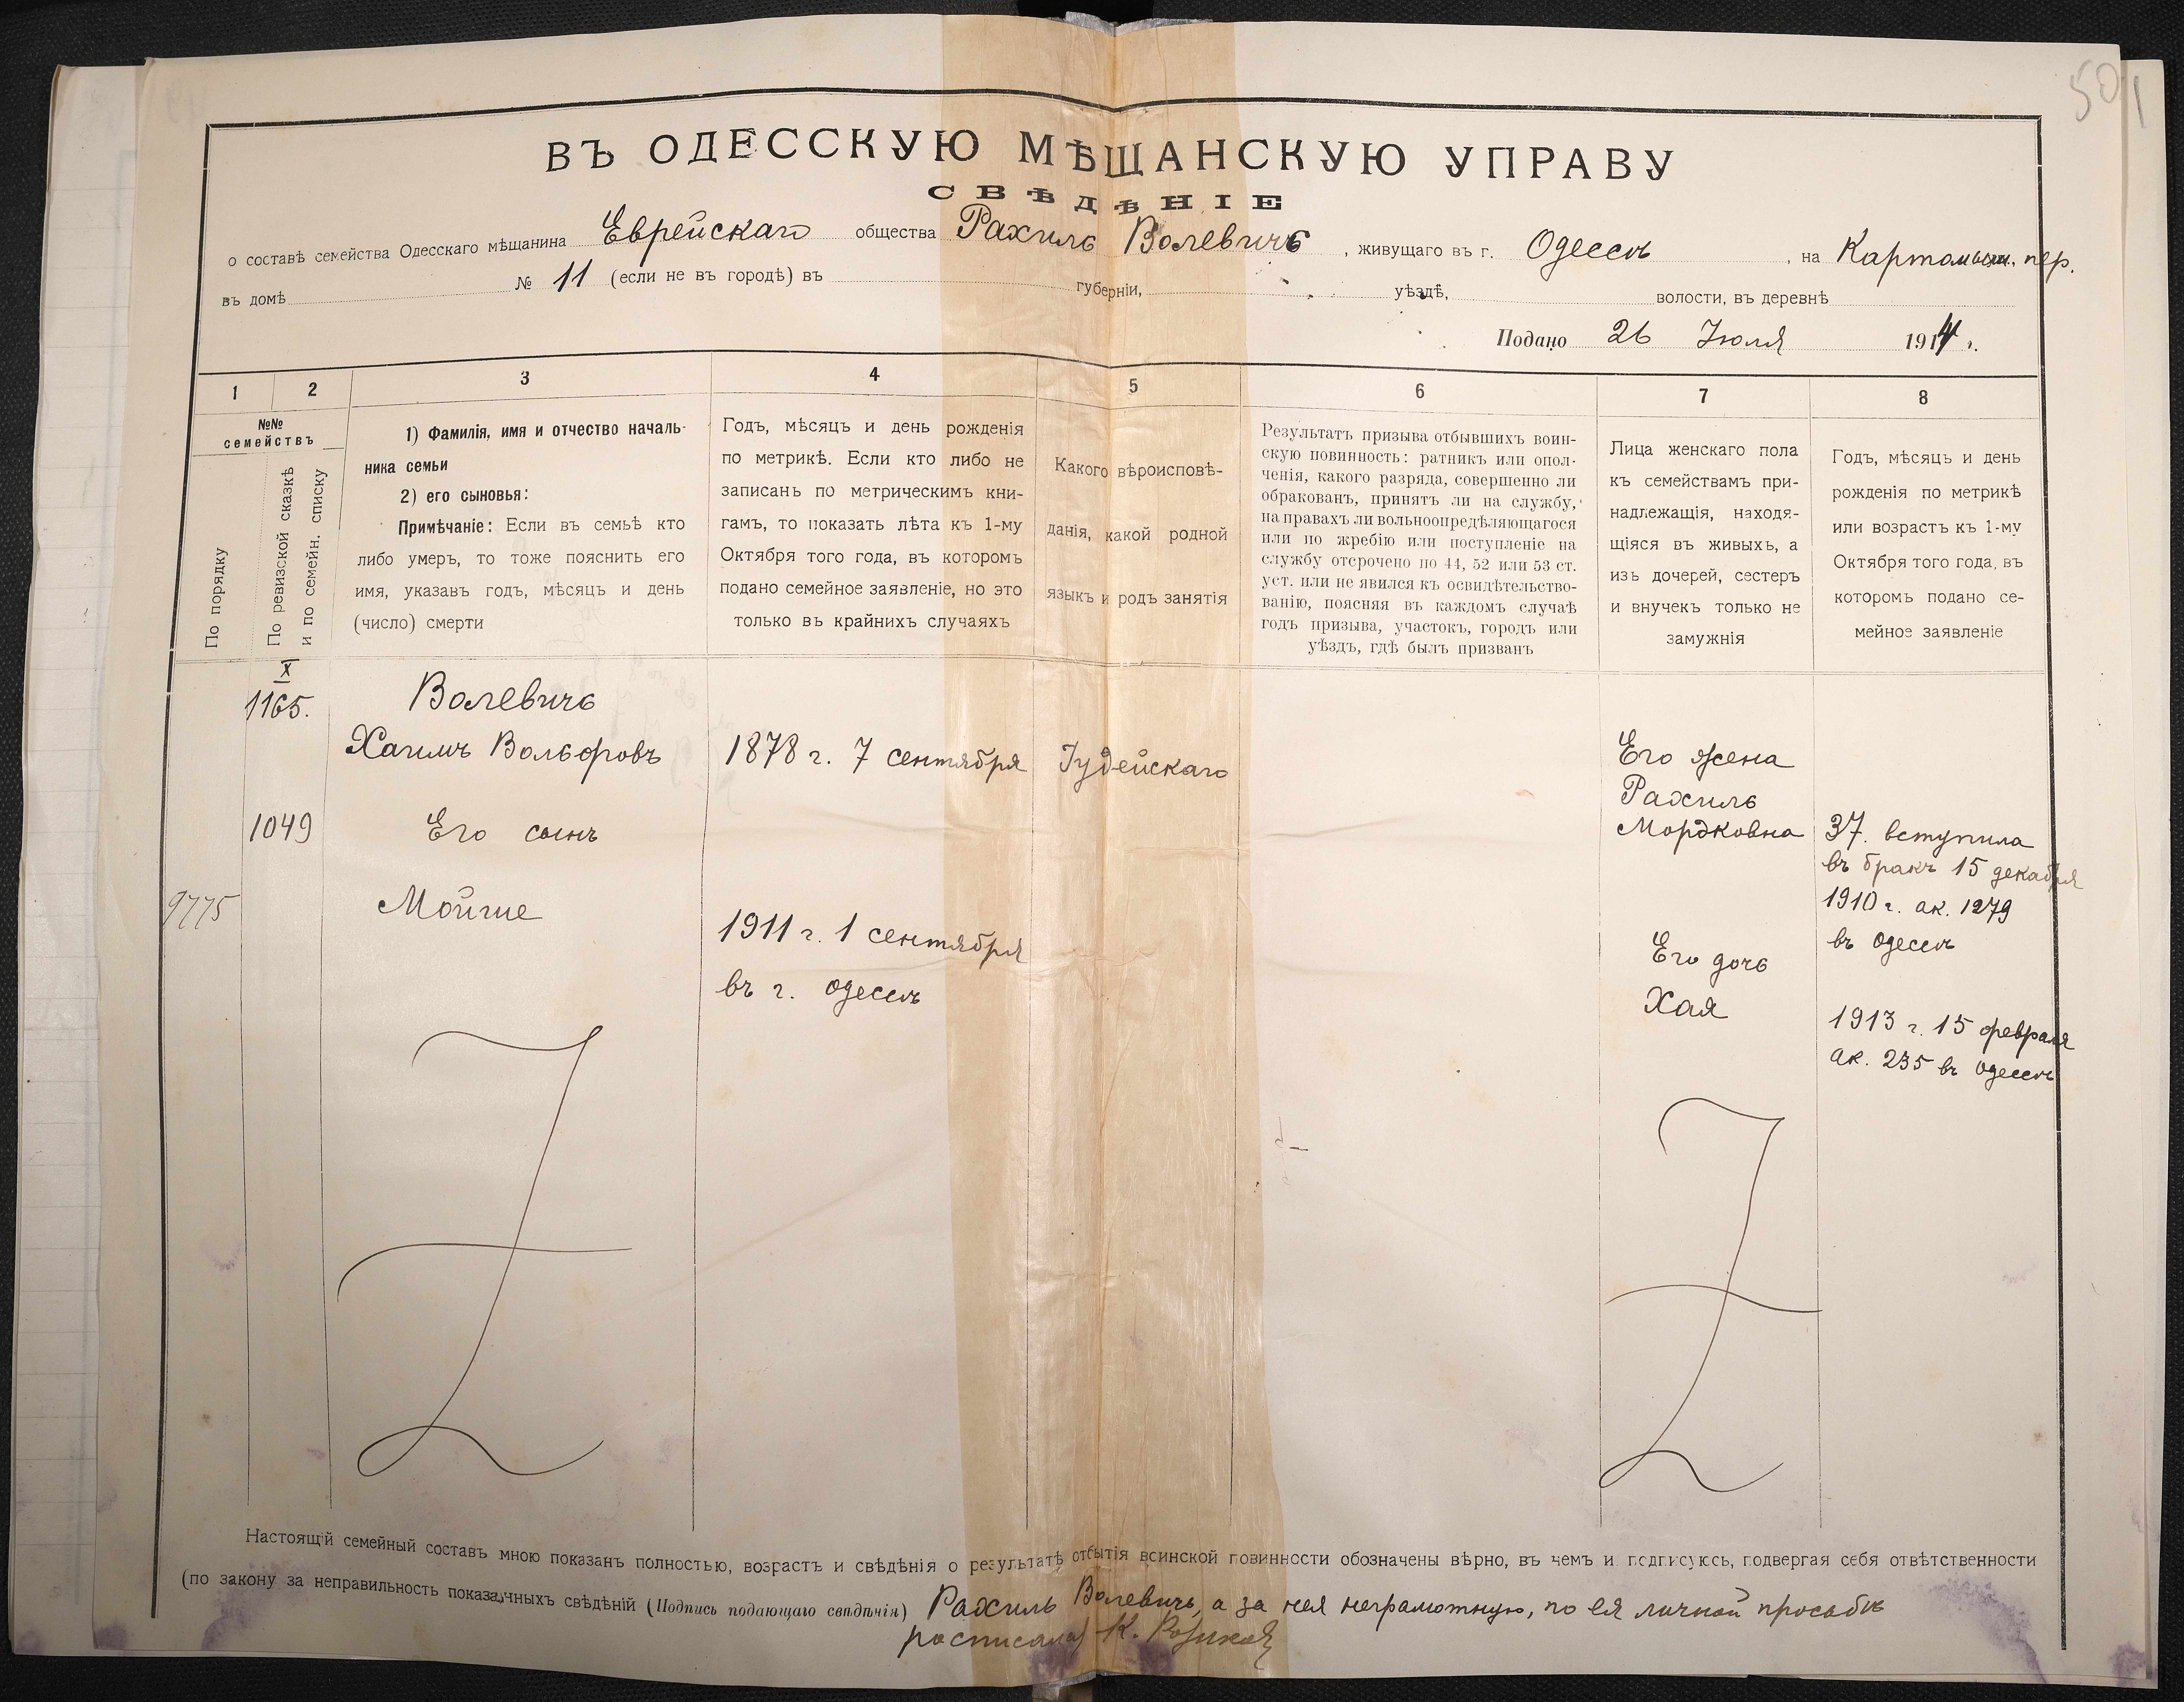 501
ВЪ ОДЕССКУЮ МѢЩАНСКУЮ УПРАВУ
СВѢДѢНІЕ
о составѣ семейства Одесскаго мѣщанина Еврейскаго общества Рахиль Волевичъ, живущаго въ г. Одессѣ, на Картамыш. пер.
въ домѣ № 11 (если не въ городѣ) въ губерніи, уѣздѣ, волости, въ деревнѣ
Подано 26 Іюля 1914 г.
1 2 3 4 5 6 7 8
№№
семействъ
По порядку
По ревизской сказкѣ
и по семейн. списку
1) Фамилія, имя и отчество началь-
ника семьи
2) его сыновья:
Примѣчаніе: Если въ семьѣ кто
либо умеръ, то тоже пояснить его
имя, указавъ годъ, мѣсяцъ и день
(число) смерти
Годъ, мѣсяцъ и день рожденія
по метрикѣ. Если кто либо не
записанъ по метрическимъ кни-
гамъ, то показать лѣта къ 1-му
Октября того года, въ которомъ
подано семейное заявленіе, но это
только въ крайнихъ случаяхъ
Какого вѣроисповѣ-
данія, какой родной
языкъ и родъ занятія
Результатъ призыва отбывшихъ воин-
скую повинность: ратникъ или опол-
ченія, какого разряда, совершенно ли
обракованъ, принятъ ли на службу,
на правахъ ли вольноопредѣляющагося
или по жребію или поступленіе на
службу отсрочено по 44, 52 или 53 ст.
уст. или не явился къ освидѣтельство-
ванію, поясняя въ каждомъ случаѣ
годъ призыва, участокъ, городъ или
уѣздъ, гдѣ былъ призванъ
Лица женскаго пола
къ семействамъ при-
надлежащія, находя-
щіяся въ живыхъ, а
изъ дочерей, сестеръ
и внучекъ только не
замужнія
Годъ, мѣсяцъ и день
рожденія по метрикѣ
или возрастъ къ 1-му
Октября того года, въ
которомъ подано се-
мейное заявленіе
X
1165.
Волевичъ
Хаимъ Вольфовъ
1878 г. 7 сентября
Іудейскаго
Его жена
Рахиль
Мордковна
37. вступила
въ бракъ 15 декабря
1910 г. ак. 1279
въ Одессѣ
1049
Его сынъ
9775
Мойше
1911 г. 1 сентября
въ г. Одессѣ
Его дочь
Хая
1913 г. 15 февраля
ак. 235 въ Одессѣ
Настоящій семейный составъ мною показанъ полностью, возрастъ и свѣдѣнія о результатѣ отбытія воинской повинности обозначены вѣрно, въ чемъ и подписуюсь, подвергая себя отвѣтственности
(по закону за неправильность показанныхъ свѣдѣній (Подпись подающаго свѣдѣнія) Рахиль Волевичъ, а за нея неграмотную, по ея личной просьбѣ
росписался К.